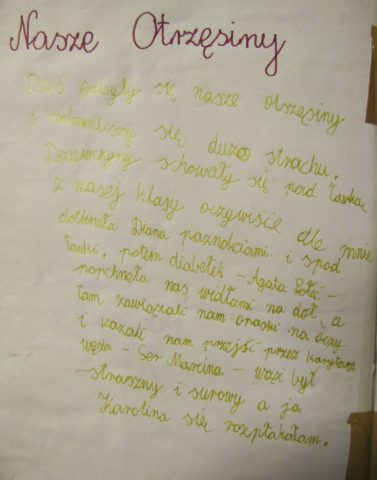 Nasze Otrzęsiny
Dziś odbyły się nasze otszęsiny
i najedliśmy się dużo strachu.
Dziewczyny schowały się pod ławkai
z nasej klasy oczywiście dle mnie
dotknęła Diana paznokciami i spod
ławki, potem diabełek - Agata -
popchnęła nas widłami na dół, a
tam zawiązali nam opaski na oczy
i kazali nam przejść przez korytarz
węża - Ser Marcina - wąż był
straszny i surowy a ja
Karolina się rozpłakałam.